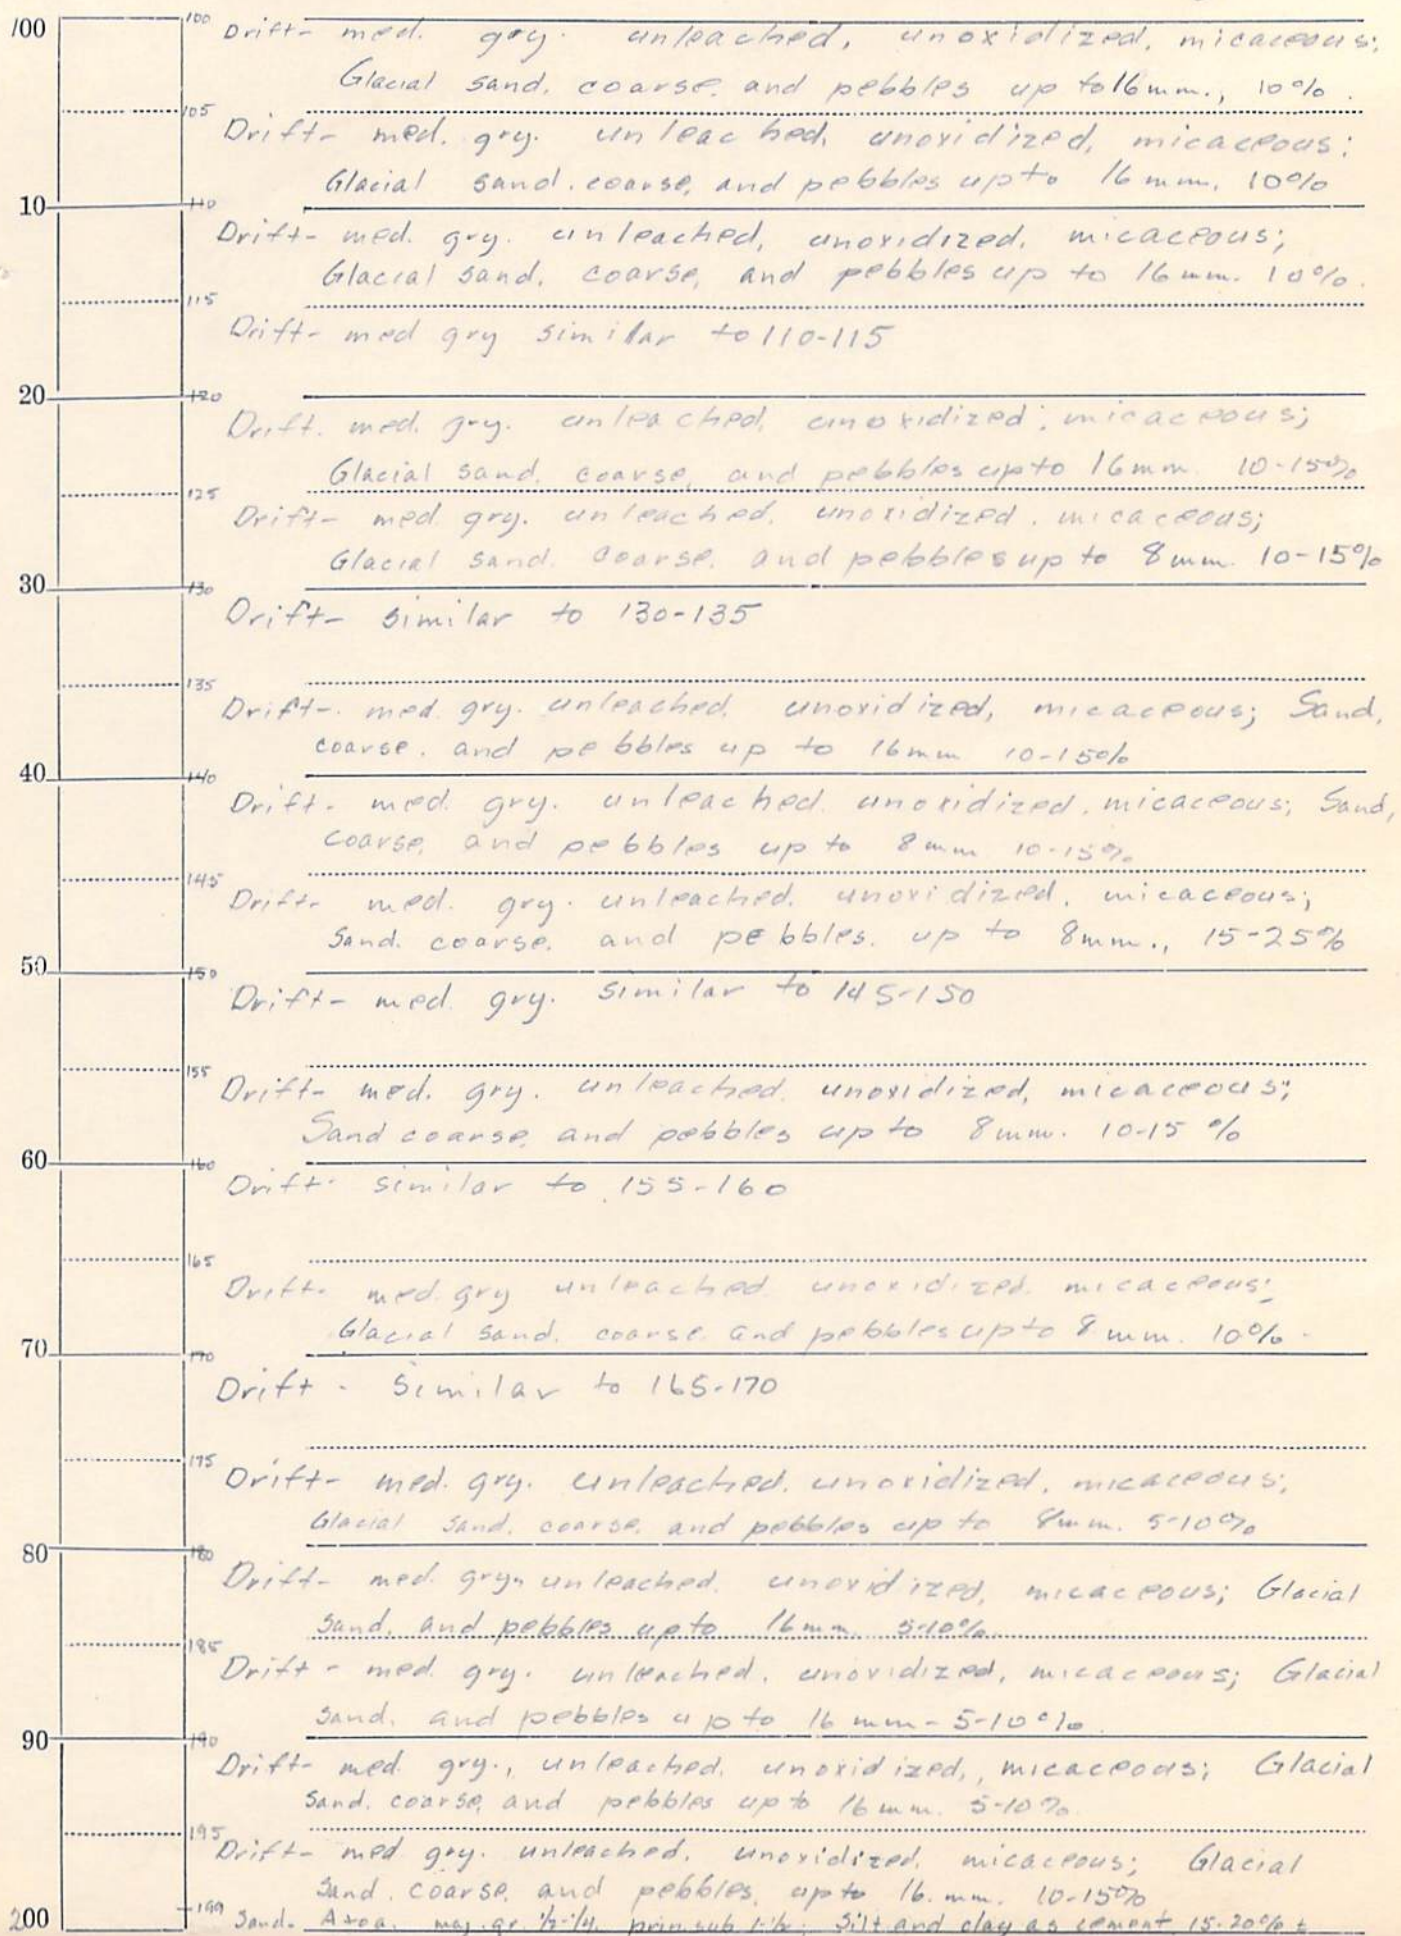 100 100 Drift- med. gry. unleached, unoxidized, micaceous;
Glacial sand, coarse, and pebbles up to 16 mm., 10%.
105
Drift- med. gry. unleached, unoxidized, micaceous;
Glacial sand, coarse, and pebbles up to 16 mm, 10%
10 110
Drift- med. gry. unleached, unoxidized, micaceous;
Glacial sand, coarse, and pebbles up to 16 mm. 10%.
115
Drift- med gry similar to 110-115
20 120
Drift. med. gry. unleached, unoxidized; micaceous;
Glacial sand, coarse, and pebbles up to 16 mm 10-15%
125
Drift- med. gry. unleached, unoxidized, micaceous;
Glacial sand. coarse, and pebbles up to 8 mm. 10-15%
30 130
Drift- similar to 130-135
135
Drift-. med. gry. unleached, unoxidized, micaceous; Sand,
coarse, and pebbles up to 16 mm 10-15%
40 140
Drift- med. gry. unleached, unoxidized, micaceous; Sand,
coarse, and pebbles up to 8 mm 10-15%
145
Drift- med. gry. unleached, unoxidized, micaceous;
Sand, coarse, and pebbles, up to 8 mm., 15-25%
50 150
Drift- med. gry. similar to 145-150
155
Drift- med. gry. unleached, unoxidized, micaceous;
Sand coarse, and pebbles up to 8 mm. 10-15 %
60 160
Drift- similar to 155-160
165
Drift- med. gry unleached, unoxidized, micaceous;
Glacial sand, coarse and pebbles up to 8 mm. 10%.
70 170
Drift - Similar to 165-170
175
Drift- med. gry. unleached, unoxidized, micaceous;
Glacial sand, coarse, and pebbles up to 8 mm. 5-10%
80 180
Drift- med. gry. unleached, unoxidized, micaceous; Glacial
sand, and pebbles up to 16 mm, 5-10%.
185
Drift - med. gry. unleached, unoxidized, micaceous; Glacial
sand, and pebbles up to 16 mm - 5-10%.
90 190
Drift- med. gry., unleached, unoxidized, micaceous; Glacial
sand, coarse, and pebbles up to 16 mm. 5-10%.
195
Drift- med gry. unleached, unoxidized, micaceous; Glacial
sand, coarse, and pebbles, up to 16. mm. 10-15%
200 199 Sand- maj. gr. 1/2-1/4, prin. sub Silt and clay as cement, 15-20%